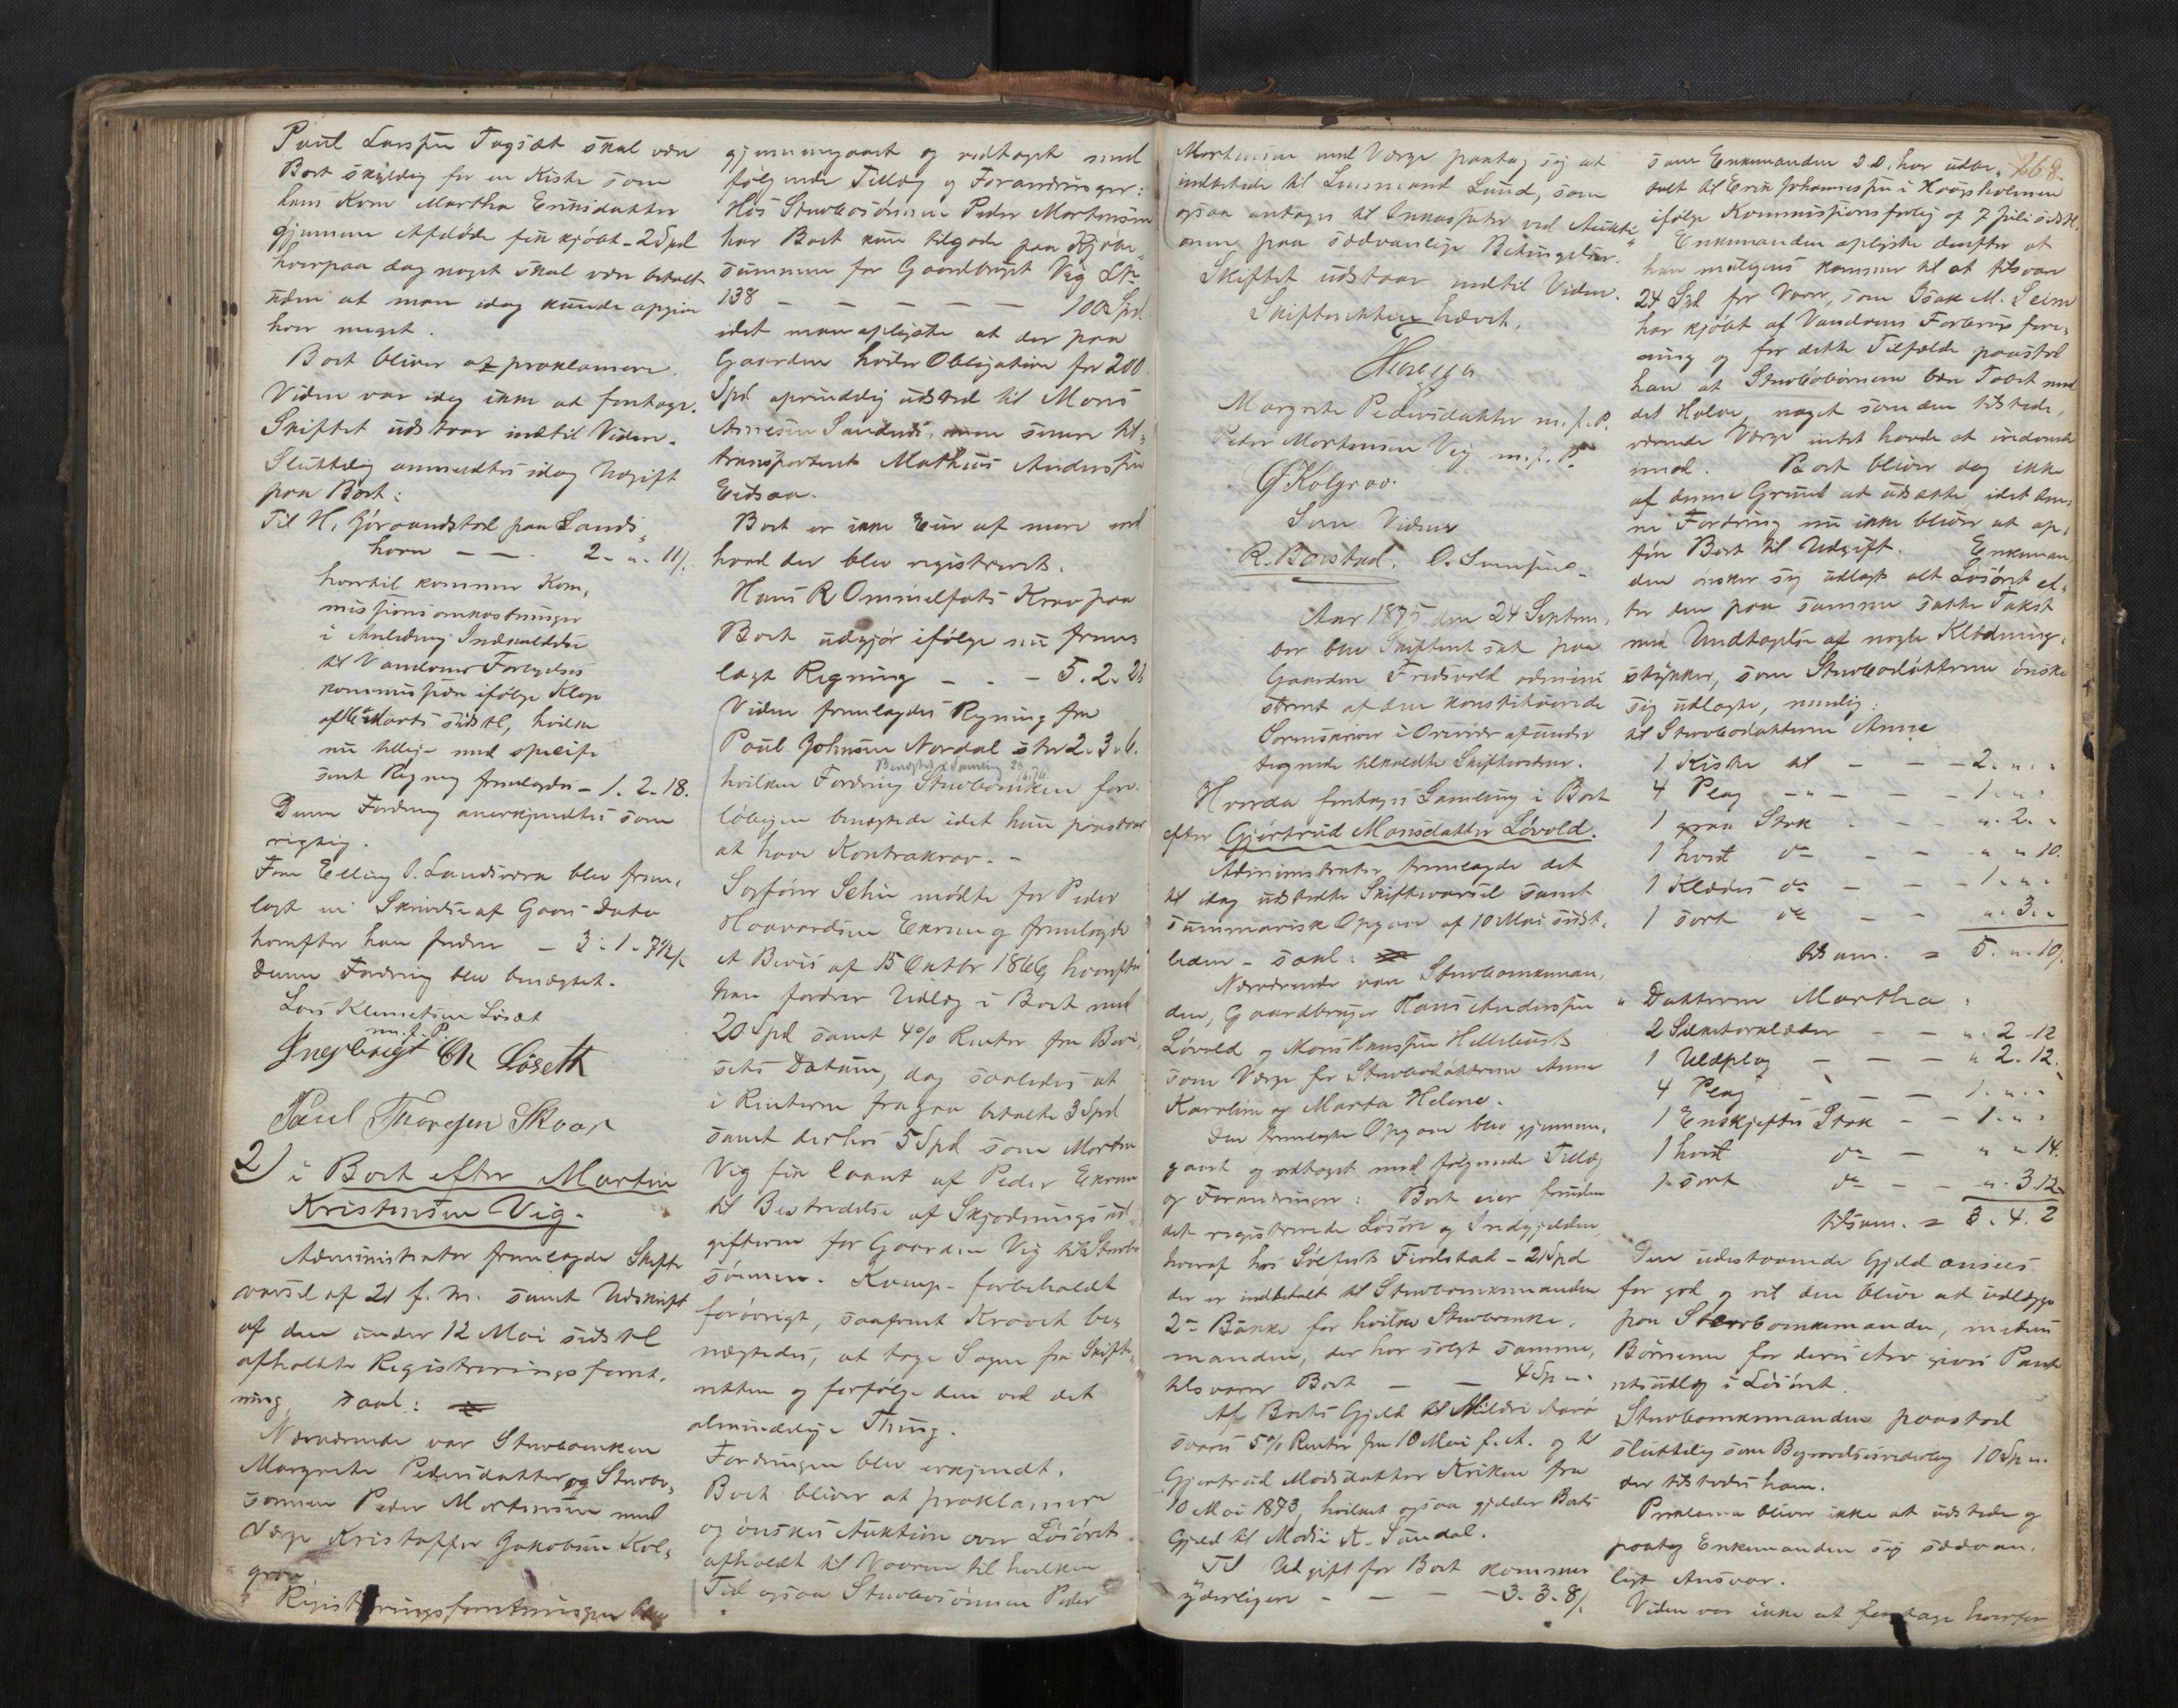 Paul Larssen Fagsæt skal være
Boet skyldig for en Kiste som
hans Kone Martha Eriksdatter
gjennem Afdøde fik kjøbt - 2 Spd
hvorpaa dog noget skal være betalt
uden at man idag kunde opgive
hvor meget.
Boet bliver at proklamere.
Viden var idag ikke at foretage.
Skiftet udstaar indtil Videre.
Sluttelig anmeldtes idag Udgift
paa Boet:
Til H. paa Lands,
horn - - - 2 - " - 11 /.
hvortil kommer Kom,
missionsomkostninger
i Anledning Indkaldelse
til Vandems Forligelses
kommission ifølge Klage
af Marts sidstl, hvilke
nu tillige med specifi
sert Regning fremlagdes - 1. 2. 18.
Denne Fordring anerkjendtes som
rigtig.
Fra Elling O. Landsvern blev frem,
lagt en Skrivelse af Gaars Dato
hvorefter han fordrer - 3 - 1 - 7½ /.
Denne Fordring blev benægtet.
Lars Klemetsen Løset
m. f. P.
Ingebrigt Løseth
Paul Thoresen Skaar
2) i Boet efter Martin
Kristensen Vig.
Administrator fremlagde Skifte
varsel af 21 f. M. samt Udskrift
af den under 12 Mai sidstl
afholdte Registreringsforret,
ning, saal:
Nærværende var Stervboenken
Margrete Pedersdatter og Stervbo,
sønnen Peder Mortensen med
Værge Kristoffer Jakobsen Kol,
grov
Registreringsforretningen blev
gjennemgaaet og vedtaget med
følgende Tillæg og Forandringer:
Hos Stervbosønnen Peder Mortensen
har Boet kun tilgode paa Kjøbe,
summen for Gaardbruget Vig Lr.
138 - - - - - 100 Spd
idet man oplyste at der paa
Gaarden hviler Obligation for 200
Spd oprindelig udstedt til Mons
Arnesen Sandnes men senere til,
transporteret Mathias Anderssen
Eidsaa.
Boet er ikke Eier af mere end
hvad der blev registreret.
Hans R Ommelfots Krav paa
Boet udgjør ifølge nu frem,
lagt Regning - - - 5. 2. 21
Viden fremlagdes Regning fra
Paul Johnsen Nordal stor 2. 3. 6.
Benægtet i Samling 23
hvilken Fordring Stervboenken fore
løbigen benægtede idet hun paastod
at have Kontrakrav. -
Sagfører Sehm mødte for Peder
Haavardsen Ekrem og fremlagde
et Bevis af 15 Oktbr 1866 hvorefter
han fordrer Udlæg i Boet med
20 Spd samt 4% Renter fra Bevi,
sets Datum, dog saaledes at
i Renterne fragaar betalte 3 Spd
samt derhos 5 Spd som Morten
Vig fik laant af Peder Ekrem
til Bestridelse af Skjødningsud,
gifterne for Gaarden Vig til Stervbo
sønnen. Komp. forbeholdt
forøvrigt, saafremt Kravet be,
nægtedes, at tage Sagen fra Skifte,
retten og forfølge den ved det
almindelige Thing.
Fordringen blev erkjendt.
Boet bliver at proklamere
og ønskes Auktion over Løsøret
afholdt til Vaaren til hvilken
Tid ogsaa Stervbosønnen Peder
Mortensen med Værge paatog sig at
indbetale til Lensmand Lund, som
ogsaa antages til Inkassator ved Aukti,
onen paa sædvanlige Betingelser.
Skiftet udstaar indtil Videre.
Skifteretten hævet.
Haregga
Margrete Pedersdatter m. f. P.
Peder Mortensen Vig m. f. P.
Kolgrov
Som Vidner
R. Barstad. O. Svensen
Aar 1875 den 24 Septem,
ber blev Skifteret sat paa
Gaarden Fredsvold admini
streret af den konstituerede
Sorenskriver i af under
tegnede tilkaldte Skiftevidner.
Hvorda foretages Samling i Boet
efter Gjertrud Monsdatter Løvold.
Administrator fremlagde det
til idag udstedte Skiftevarsel samt
summarisk Opgave af 10 Mai sidst,
leden - saal:
Nærværende var Stervboenkeman,
den, Gaardbruger Hans Anderssen
Løvold og Mons Hanssen Hellebust
som Værge for Stervbodøttrene Anne
Karoline og Marta Helene.
Den fremlagte Opgave blev gjennem,
gaaet og vedtaget med følgende Tillæg
og Forandringer: Boet eier foruden
det registrerede Løsøre og Indgjelden,
hvoraf hos Sølfest Fivelstad - 21 Spd
der er indbetalt til Stervboenkemanden
2de Bænke for hvilke Stervboenke,
manden, der har solgt samme,
tilsvarer Boet - - 4 Sp " -
Af Boets Gjeld til Mildri Aarø
svares 5% Renter fra 10 Mai f. A. og til
Gjertrud Madsdatter Kriken fra
10 Mai 1873, hvilket ogsaa gjelder Boets
Gjeld til Mads A. Sundal.
Til Udgift for Boet kommer
yderligere - - - 3 - 3 - 8 /.
268.
som Enkemanden s. D. har udbe,
talt til Erik Johannessen i Haugsholmen
ifølge Kommissionsforlig af 7 Juli sidstl.
Enkemanden oplyste derefter at
han muligens kommer til at tilsvare
24 Spd for Varer, som Isak M. Leine
har kjøbt af Vandems Forbrugsfore,
ning og for dette Tilfælde paastod
han at Stervbobørnene bør Tabet med
det Halve, noget som den tilstede,
værende Værge intet havde at indvende
imod. Boet bliver dog ikke
af denne Grund at udsætte idet den,
ne Fordring nu ikke bliver at op,
føre Boet til Udgift. Enkeman,
den ønsker sig udlagt alt Løsøret ef,
ter den paa samme satte Takst
med Undtagelse af nogle Klædnings,
stykker, som Stervbodøttrene ønske
sig udlagte, nemlig:
til Stervbodatteren Anne
1 Kiste til - - - 2. " . "
4 Plag - " - - - 1. " . "
1 graa Stak - - - " . 2. "
1 hvid do - - - " " 10.
1 Klædes do - - - 1. " . "
1 sort do - - " . 3. "
tilsam. = 5. " . 10 /.
" Datteren Martha:
2 Silketørklæder - - " . 2 - 12
1 Uldplag - - - " 2. 12.
4 Plag - - - 1. " . "
1 Enskjeftes Stak - - 1. " . "
1 hvid do - " " 14.
1 sort do - - " . 3 12.
tilsam. = 3. 4. 2
Den udestaaende Gjeld ansees
for god og vil den blive at udlægge
paa Stervboenkemanden, medens
Børnene for deres Arv gives Pante
retsudlæg i Løsøret.
Stervboenkemanden paastod
sluttelig som Begravelsesvederlag 10 Sp "
der tilstodes ham.
Proklama bliver ikke at udstede og
paatog Enkemanden sig sædvan,
ligt Ansvar.
Viden var ikke at foretage hvorfor